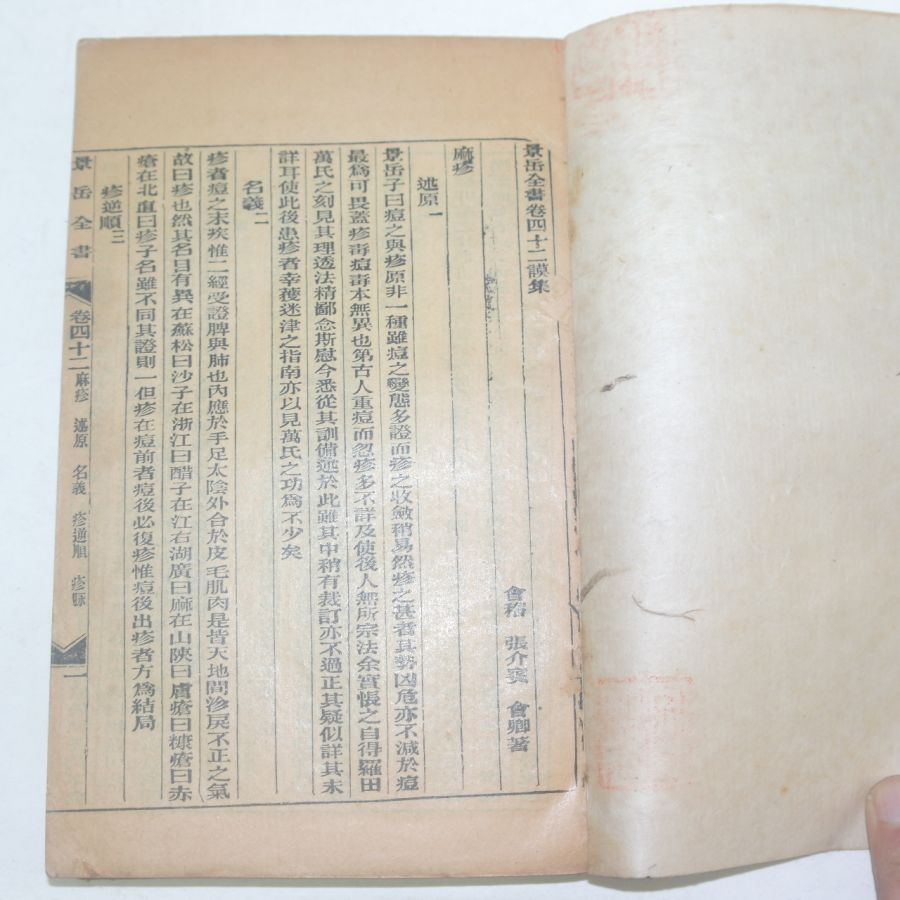 景岳全書卷四十二謨集
會稽 張介賓 會卿著
麻疹
述原一
景岳子曰痘之與疹原非一種雖痘之變態多證而疹之收斂稍易然疹之甚者其勢凶危亦不減於痘
最爲可畏蓋疹毒痘毒本無異也第古人重痘而忽疹多不詳及使後人無所宗法余實悵之自得羅田
萬氏之刻見其理透法精鄙念斯慰今悉從其訓備述於此雖其中稍有裁訂亦不過正其疑似詳其未
詳耳使此後患疹者幸獲迷津之指南亦以見萬氏之功爲不少矣
名義二
疹者痘之末疾惟二經受證脾與肺也內應於手足太陰外合於皮毛肌肉是皆天地間沴戾不正之氣
故曰疹也然其名目有異在蘇松曰沙子在浙江曰醋子在江右湖廣曰麻在山陝曰膚瘡曰糠瘡曰赤
瘡在北直曰疹子名雖不同其證則一但疹在痘前者痘後必復疹惟痘後出疹者方爲結局
疹逆順三
景岳全書 卷四十二 麻疹 述原 名義 疹逆順 疹脉 一